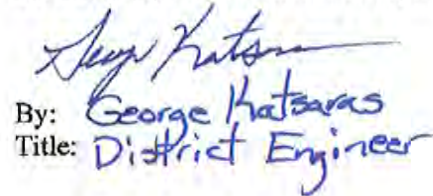 George Katsaras
By: George Katsaras
Title: District Engineer